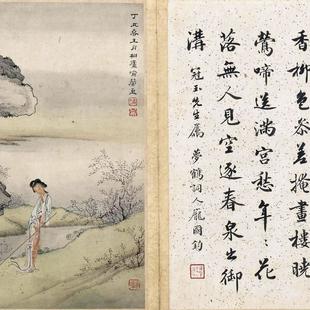 香柳色參差掩畫樓曉
鶯啼送滿宮愁年〻花
落無人見空逐春泉出御
溝
冠玉先生屬 夢鶴詞人龐國鈞
春王月